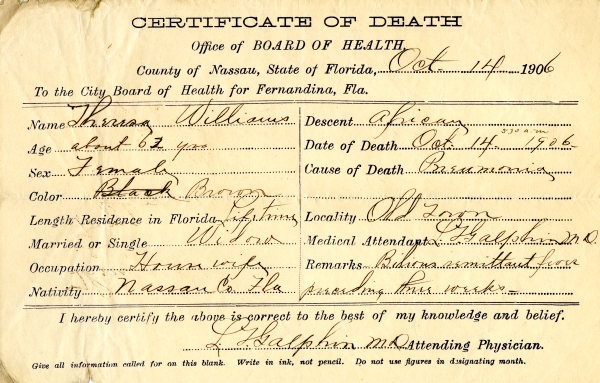 CERTIFICATE OF DEATH
Office of BOARD OF HEALTH,
County of Nassau, State of Florida, Oct. 14 1906
To the City Board of Health for Fernandina, Fla.
Name Theresa Williams
Age about 62 yrs
Sex Female
Color Black Brown
Length Residence in Florida Lifetime
Married or Single Widow
Occupation House wife
Nativity Nassau Co Fla
Descent African
Date of Death Oct 14 830 am 1906
Cause of Death Pneumonia
Locality Old Town
Medical Attendant L Galphin M.D.
Remarks Bilious remittant fever
preceding three weeks
I hereby certify the above is correct to the best of my knowledge and belief.
Galphin MD Attending Physician.
Give all information called for on this blank. Write in ink, not pencil. Do not use figures in designating month.